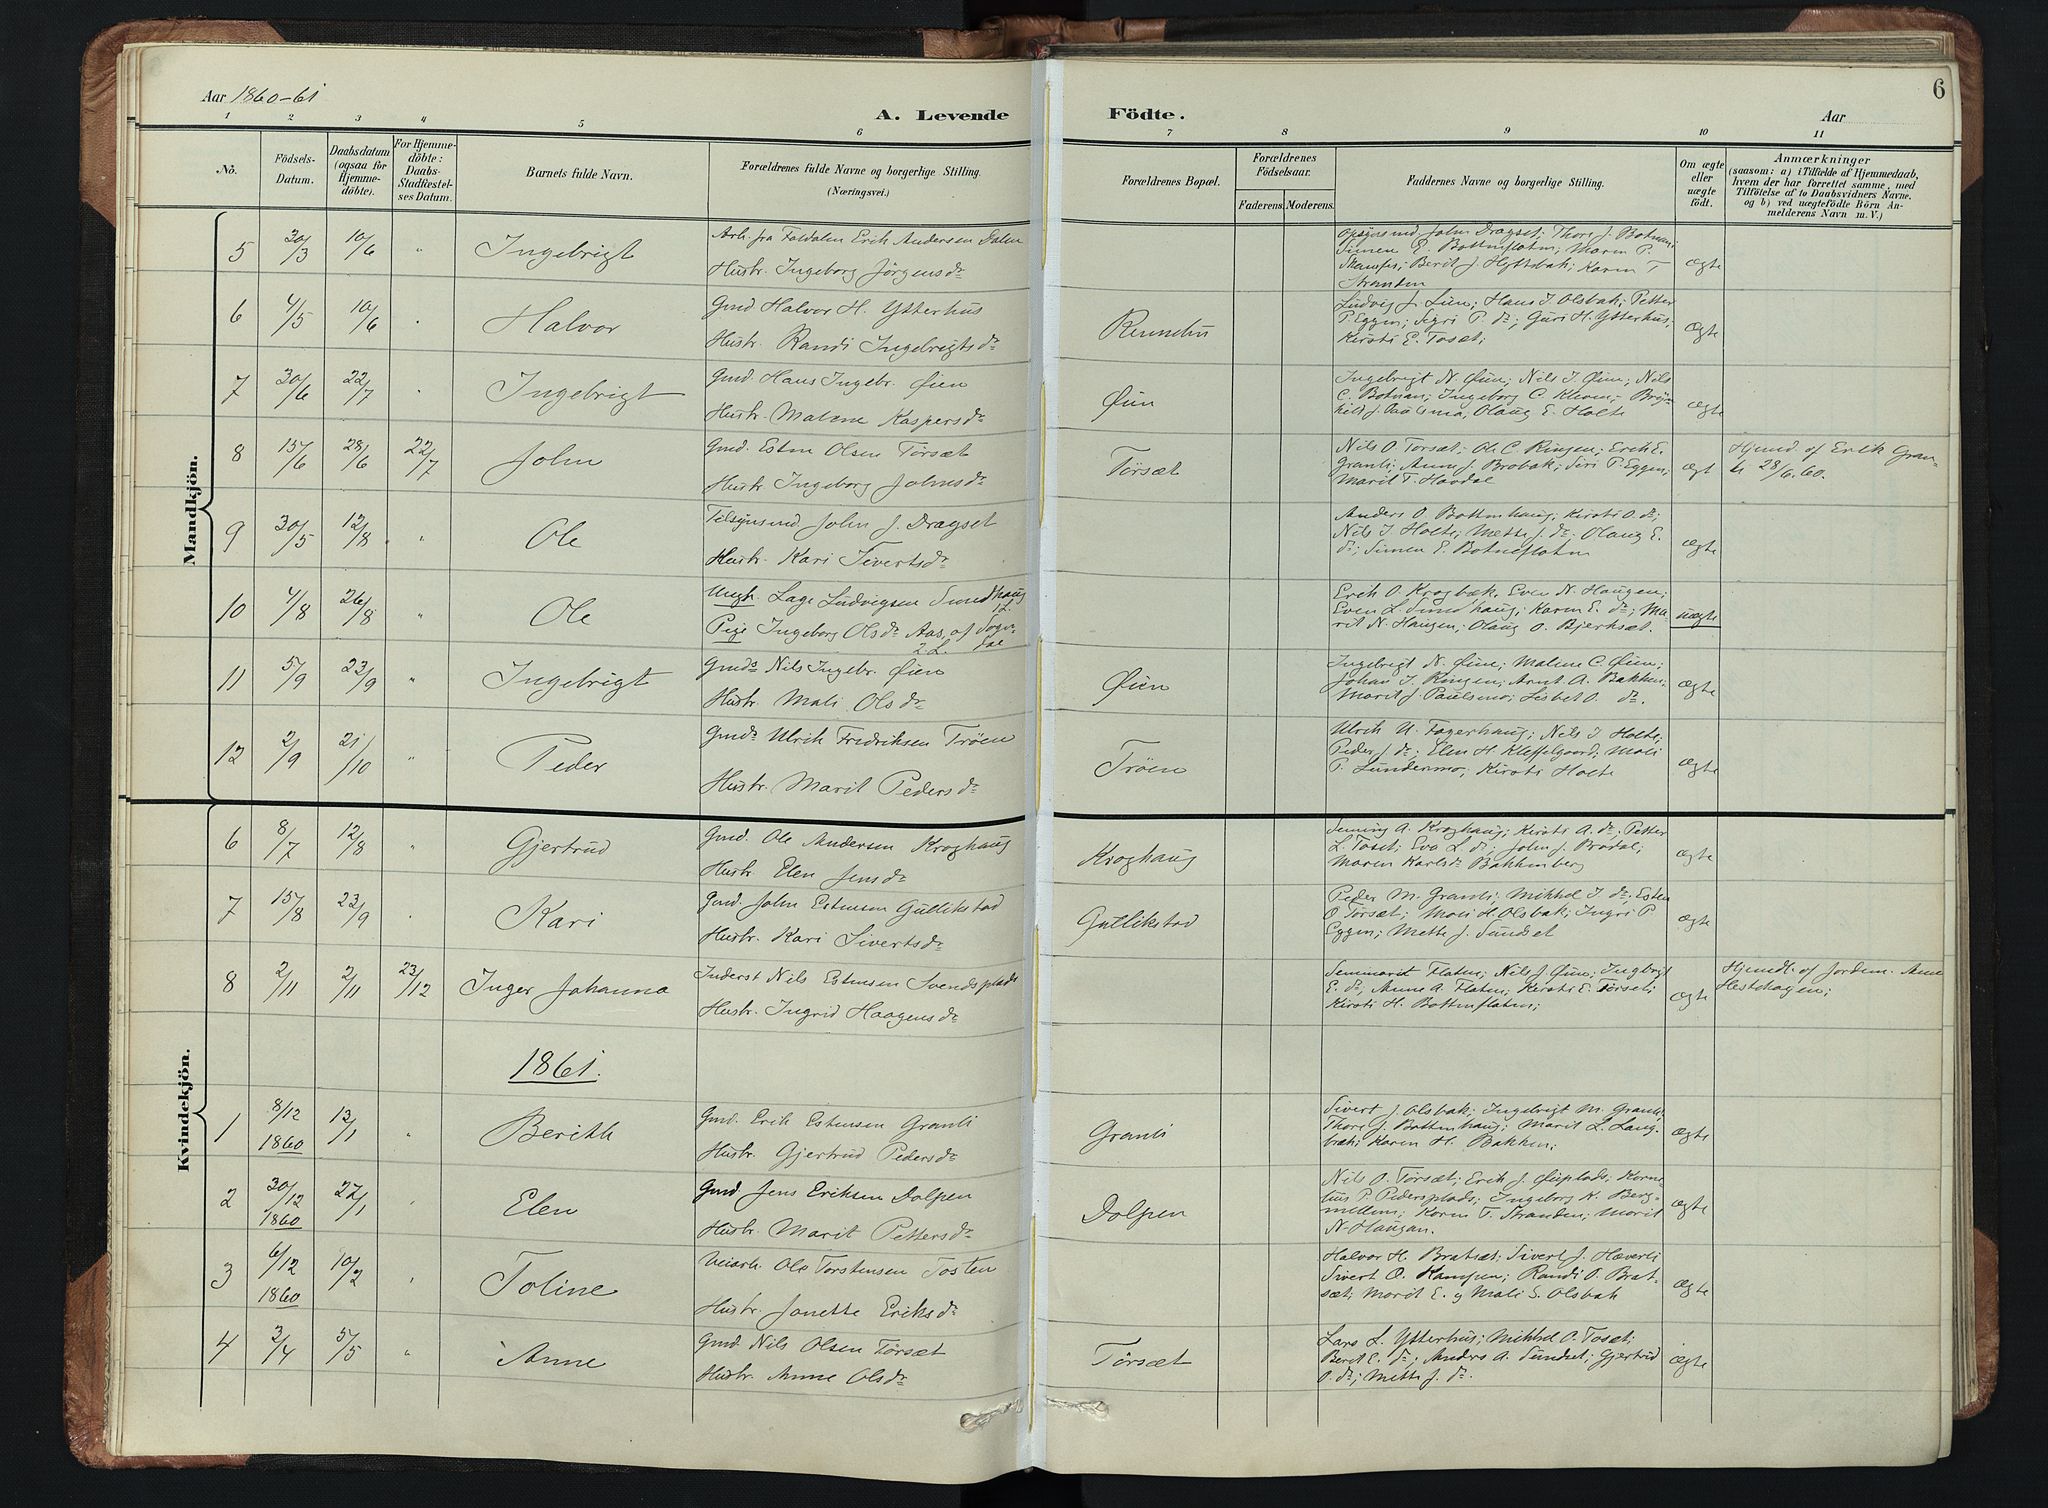 Aar 1860-61
A. Levende Födte.
Aar
6
1 2 3 4 5 6 7 8 9 10 11
No.
Födsels-Datum.
Daabsdatum (ogsaa for Hjemmedöbte).
For Hjemmedöbte: Daabs-Stadfæstelses Datum.
Barnets fulde Navn.
Forældrenes fulde Navne og borgerlige Stilling.
(Næringsvei.)
Forældrenes Bopæl.
Forældrenes Födselsaar.
Faderens. Moderens.
Faddernes Navne og borgerlige Stilling.
Om ægte eller uægte födt.
Anmærkninger
(saasom: a) i Tilfælde af Hjemmedaab,
hvem der har forrettet samme, med
Tilföielse af to Daabsvidners Navne.
og b) ved uægtefödte Börn Anmelderens Navn m. V.)
Mandkjön.
5 30/3 10/6 " Ingebrigt
Arb. fra Foldalen Erik Andersen Dalen
Hustr. Ingeborg Jörgensdr
Opsynsmd John Dragset; Thore J. Botnan;
Simen E. Bottenflaten; Maren P.
Berit J. Hyttebak; Karen T
Stranden
ægte
6 4/5 10/6 " Halvor
Gmd Halvor H. Ytterhus
Hustr. Randi Ingebrigtsdr
Rennebu
Ludvig J. Lien; Hans I. Olsbak; Petter
P. Eggen; Sigri P. dr; Guri H. Ytterhus,
Kirsti E. Toset;
ægte
7 30/6 22/7 " Ingebrigt
Gmd. Hans Ingebr. Øien
Hustr. Malene Kaspersdr
Øien
Ingebrigt N. Øien; Nils I. Øien; Nils
C. Botnan; Ingeborg C. Kleven; Bry-
hild J. Olaug E. Holte
ægte
8 15/6 28/6 22/7 John
Gmd. Esten Olsen Törsæt
Hustr. Ingeborg Johnsdr
Törsæt
Nils O. Torsæt; Ole C. Ringen; Erik E.
Granli; Anne J. Brobak; Siri P. Eggen;
Marit T. Havdal
ægt
Hjemd af Erik Gran-
li 28/6.60.
9 30/5 12/8 " Ole
Tilsynsmd John J. Dragset
Hustr. Kari Sivertsdr
Anders O. Bottenhaug; Kirsti O. dr;
Nils I. Holte; Mette J. dr; Olaug E.
dr; Simen E. Botneflaten
ægte
10 4/8 26/8 " Ole
Ungk. Lage Ludvigsen Sundhaug
1 L.
Pige Ingeborg Olsdr Aas, af Sogn-
2 L. dal
Erik O. Krogbæk, Even N. Haugen;
Even L. Sundhaug; Karen E. dr; Ma-
rit N. Haugen; Olaug O. Bjerksæt.
uægte
11 5/9 23/9 " Ingebrigt
Gmds Nils Ingebr. Øien
Hustr. Mali Olsdr
Øien
Ingebrigt N. Øien; Malene C. Øien;
Johan I. Ringen; Arnt A. Bakken;
Marit J. Paulsmo; Lisbet O. dr.
ægte
12 2/9 21/10 " Peder
Gmds Ulrik Fredriksen Tröen
Hustr. Marit Pedersdr
Tröen
Ulrik U. Fagerhaug; Nils I. Holte;
Peder J. dr; Elen H. Kleffelgaard; Mali
P. Lundermo; Kirsti Holte
ægte
Kvindekjön.
6 8/7 12/8 " Gjertrud
Gmd. Ole Andersen Kroghaug
Hustr. Elen Jensdr
Kroghaug
Seming A. Kroghaug; Kirsti A. dr; Petter
L. Toset; Eva L. dr; John J. Brodal;
Maren Karlsdr Bakkenberg
ægte
7 15/8 23/9 " Kari
Gmd. John Estensen Gullikstad
Hustr. Kari Sivertsdr
Gullikstad
Peder M. Granli; Mikkel I. dr; Esten
O Törsæt; Mali H. Olsbak; Ingri P
Eggen; Mette J. Sundset
ægte
8 2/11 2/11 23/12 Inger Johanna
Inderst Nils Estensen Svendsplads
Hustr. Ingrid Haagensdr
Flaten; Nils J. Øien; Ingbrigt
E. dr; Anne A. Flaten; Kirsti E. Törset;
Kirsti H. Bottenflaten;
ægte
Hjemdt. af Jordem. Anne
Hestehagen;
1861.
1 8/12 1860 13/1 " Berith
Gmd. Erik Estensen Granli
Hustr. Gjertrud Pedersdr
Granli
Sivert J. Olsbak; Ingebrigt M. Granli;
Thore J. Bottenhaug; Marit L. Lang-
bræk; Karen H. Bakken;
ægte
2 30/12 1860 27/1 " Elen
Gmd Jens Eriksen Dolpen
Hustr. Marit Pettersdr
Dolpen
Nils O. Törsæt; Erik J. Øieplads; Korne-
lius P. Pedersplads; Ingeborg K. Berg-
mellem; Karen T. Stranden; Marit
N. Haugan.
ægte
3 6/12 1860 10/2 " Toline
Veiarb. Ole Torstensen Tosten
Hustr. Janette Eriksdr
Halvor H. Bratsæt; Sivert J. Hæverli
Sivert O. Kampen; Randi O. Brat-
sæt; Marit E. og Mali S. Olsbak
ægte
4 3/4 5/5 " Anne
Gmd. Nils Olsen Törsæt
Hustr. Anne Olsdr
Törsæt
Lars L. Ytterhus; Mikkel O. Toset;
Berit E. dr; Anders A. Sundset; Gjertrud
O. dr; Mette J. dr.
ægte